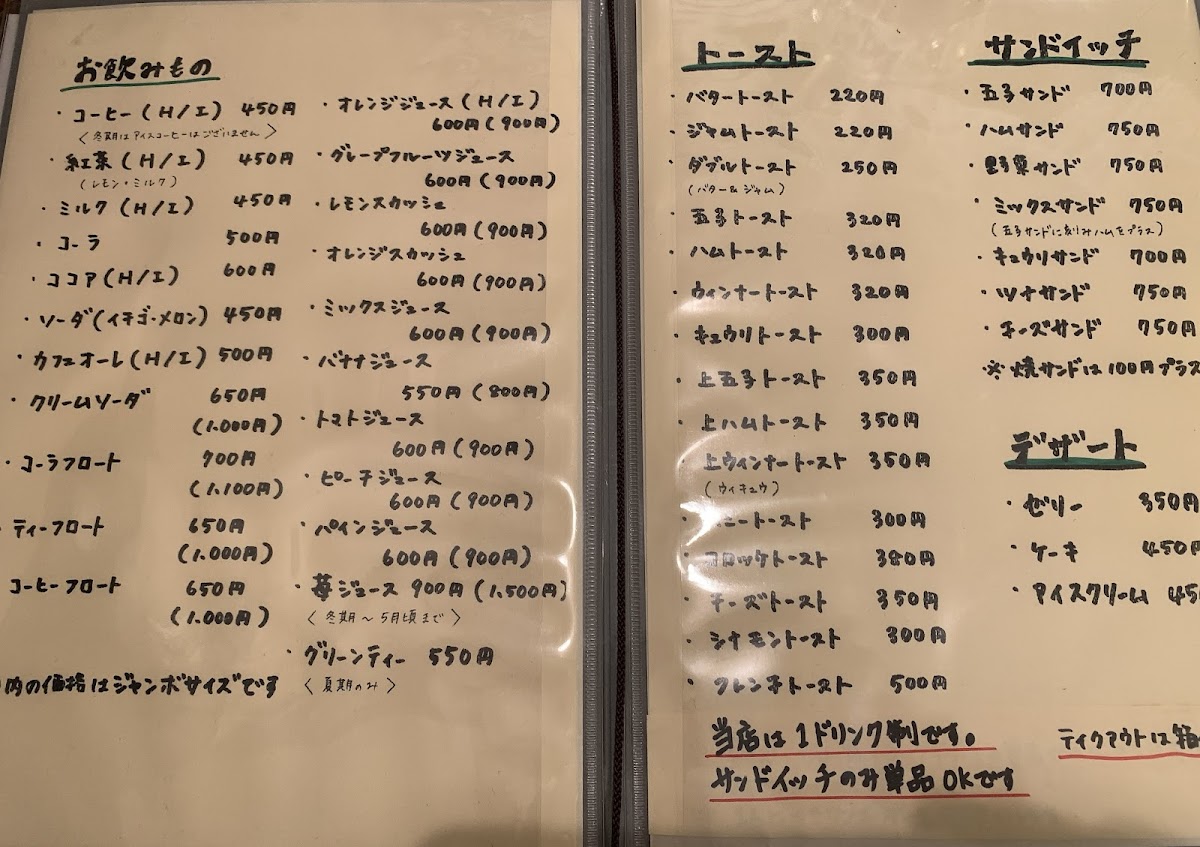 お飲みもの
・コーヒー(H/I) 450円
〈冬期はアイスコーヒーはございません〉
・紅茶(H/I) 450円
(レモン・ミルク)
・ミルク(H/I) 450円
・コーラ 500円
・ココア(H/I) 600円
・ソーダ(イチゴ・メロン) 450円
・カフェオーレ(H/I) 500円
・クリームソーダ 650円
(1.000円)
・コーラフロート 700円
(1.100円)
・ティーフロート 650円
(1.000円)
コーヒーフロート 650円
(1.000円)
内の価格はジャンボサイズです
・オレンジジュース(H/I)
600円(900円)
・グレープフルーツジュース
600円(900円)
・レモンスカッシュ
600円(900円)
・オレンジスカッシュ
600円(900円)
・ミックスジュース
600円(900円)
・バナナジュース
550円(800円)
・トマトジュース
600円(900円)
・ピーチジュース
600円(900円)
・パインジュース
600円(900円)
・苺ジュース 900円(1.500円)
〈冬期〜5月頃まで〉
・グリーンティー 550円
〈夏期のみ〉
トースト
・バタートースト 220円
・ジャムトースト 220円
・ダブルトースト 250円
(バター&ジャム)
・玉子トースト 320円
・ハムトースト 320円
・ウィンナートースト 320円
・キュウリトースト 300円
・上玉子トースト 350円
・上ハムトースト 350円
・上ウィンナートースト 350円
(ウィキュウ)
ニートースト 300円
・コロッケトースト 380円
・チーズトースト 350円
・シナモントースト 300円
・フレンチトースト 500円
当店は1ドリンク制です。
サンドイッチのみ単品OKです
サンドイッチ
・玉子サンド 700円
・ハムサンド 750円
・野菜サンド 750円
・ミックスサンド 750円
(玉子サンドに刻みハムをプラス)
・キュウリサンド 700円
・ツナサンド 750円
・チーズサンド 750円
※焼サンドは100円プラス
デザート
・ゼリー 350円
・ケーキ 450円
・アイスクリーム 45
テイクアウトは箱